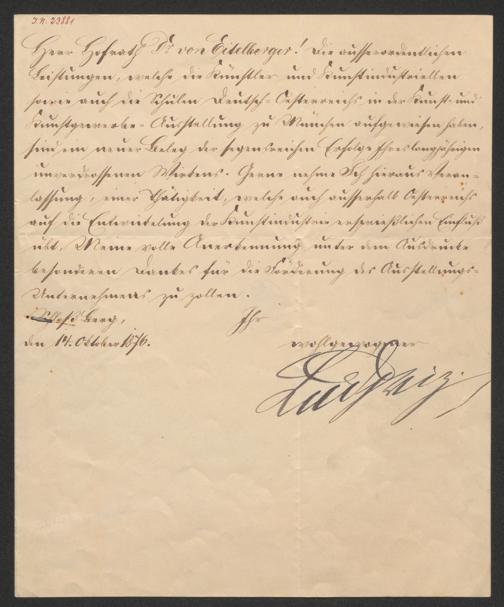 J.N. 23881
Herr Hofrath Dr von Eitelberger! Die ausserordentlichen
Leistungen, welche die Künstler und Kunstindustriellen
sowie auch die Schulen Deutsch-Oesterreichs in der Kunst- und
Kunstgewerbe-Ausstellung zu München aufgewiesen haben,
sind ein neuer Beleg der segensreichen Erfolge Ihres langjährigen
unverdrossenen Wirkens. Gerne nehme Ich hieraus Veran-
lassung, einer Thätigkeit, welche auch ausserhalb Oesterreichs
auf die Entwickelung der Kunstindustrie erspriesslichen Einfluß
übt, Meine volle Anerkennung unter dem Ausdrucke
besonderen Dankes für die Förderung des Ausstellungs-
Unternehmens zu zollen.
Berg, Ihr
den 14. Oktober 1876. wohlgewogener
Ludwig.